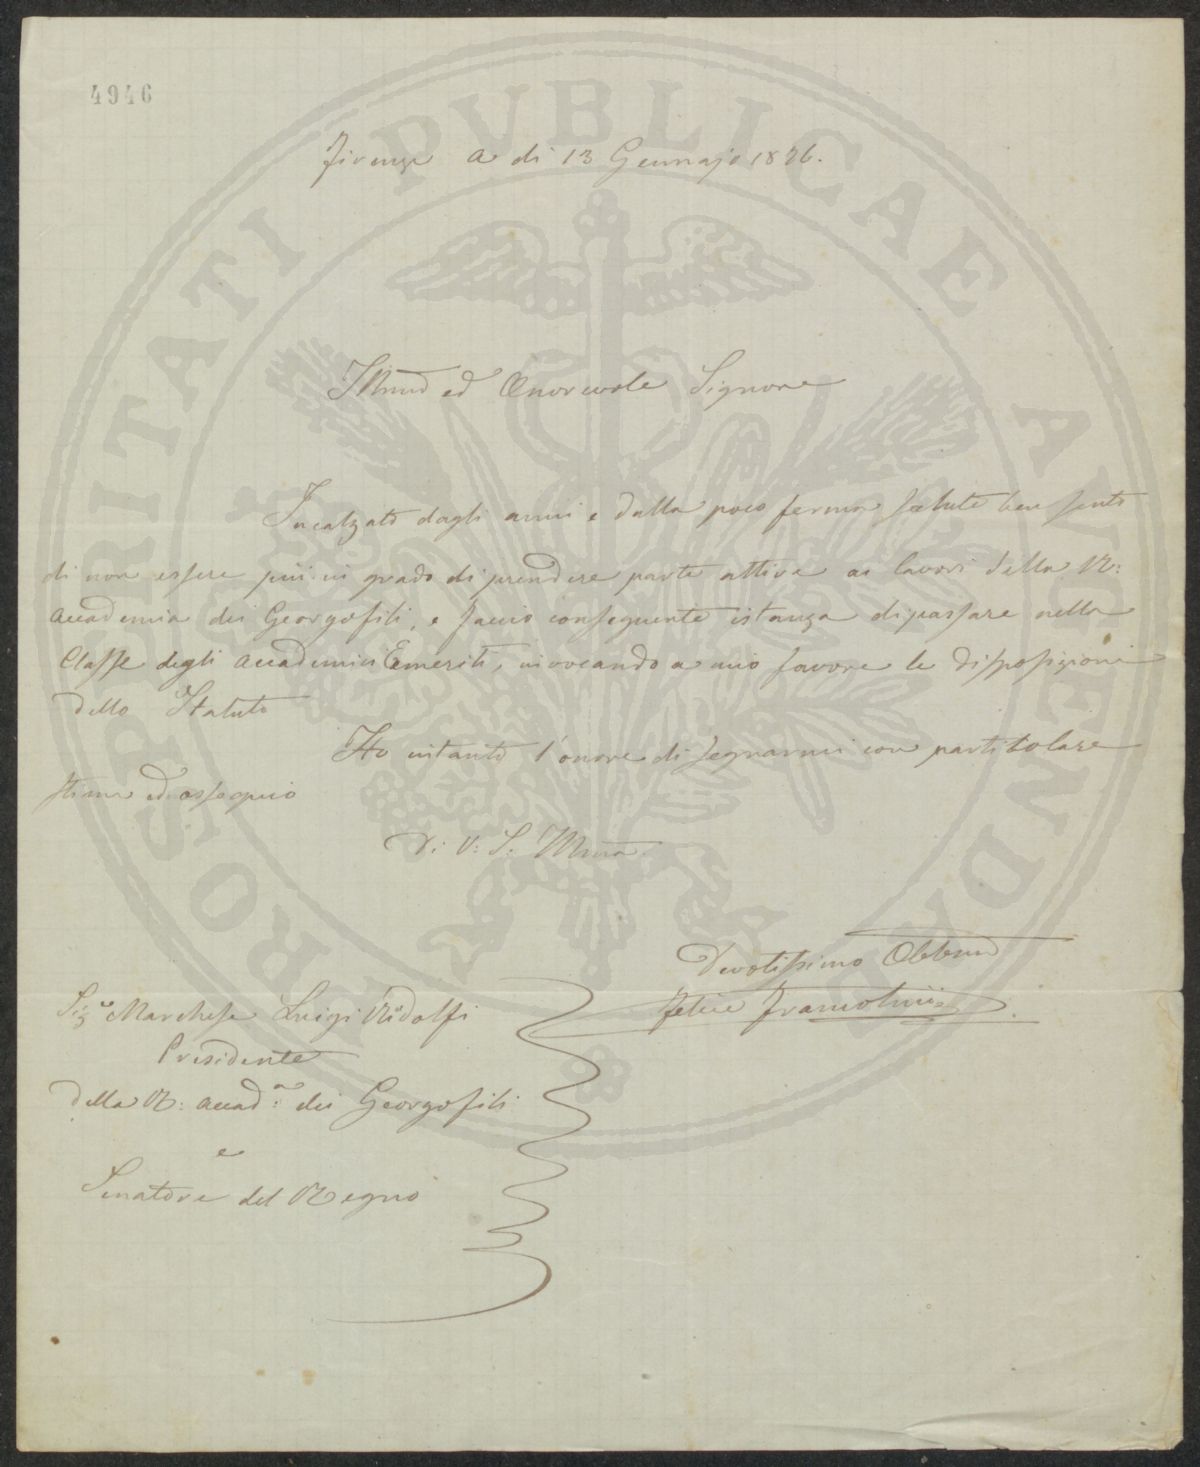 4946
PROSPERITATI PUBLICAE AUGENDAE
Firenze a di 13 Gennajo 1896.
Illmo ed Onorevole Signore
Incalzato dagli anni e dalla poco ferma salute ben sento
di non essere più in grado di prendere parte attiva ai lavori della R:
Accademia dei Georgofili, e faccio conseguente istanza di passare nella
Classe degli Accademici Emeriti, invocando a mio favore le disposizioni
dello Statuto
Ho intanto l'onore di segnarmi con particolare
stima ed ossequio
Di V: S. Illma
Devotissimo Obbmo
Felice
Sigre Marchese Luigi Ridolfi
Presidente
della R: Accad:a dei Georgofili
e
Senatore del Regno